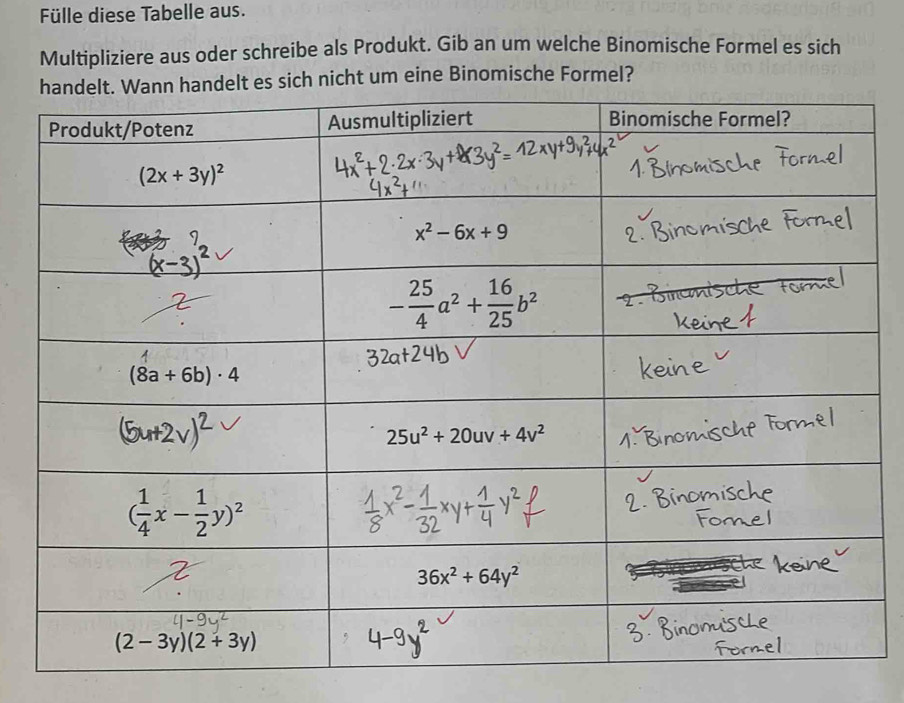 Fülle diese Tabelle aus.
Multipliziere aus oder schreibe als Produkt. Gib an um welche Binomische Formel es sich
handelt. Wann handelt es sich nicht um eine Binomische Formel?
Produkt/Potenz Ausmultipliziert Binomische Formel?
(2x + 3y)² 4x²+2·2x·3y+3y²=12xy+9y²+4x² ✓ 1. Binomische Formel
4x²+"
? x² − 6x + 9 2. Binomische Formel
(x-3)² ✓
− 25/4 a² + 16/25 b² 2. Binomische Formel
keine f
(8a + 6b) · 4 32a+24b ✓ keine ✓
(5u+2v)² ✓ 25u² + 20uv + 4v² 1. Binomische Formel
(1/4 x − 1/2 y)² 1/8 x² - 1/32 xy + 1/4 y² f 2. Binomische
Formel
36x² + 64y² keine ✓
4-9y²
(2 − 3y)(2 + 3y) 4-9y² ✓ 3. Binomische
Formel